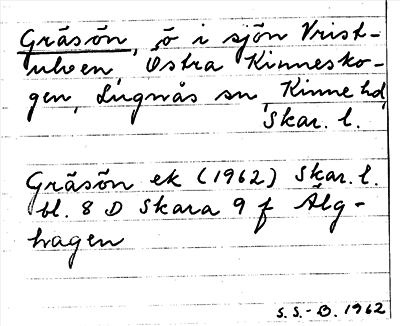 Gräsön, ö i sjön Vrist-
ulven, Östra Kinnesko-
gen, Lugnås sn, Kinne hd,
Skar. l.
Gräsön ek (1962) Skar. l.
bl. 8 D Skara 9 f Älg-
hagen
S.S.-B. 1962